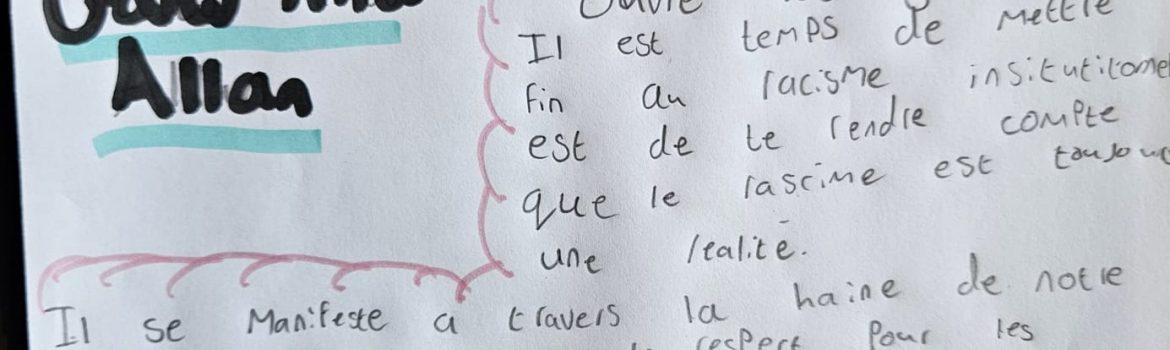 Allan
Il est temps de Mettre
fin au racisme
est de te rendre compte
que le rascime est
une réalitē.
Il se Manifeste a travers la haine de notre
respect pour les